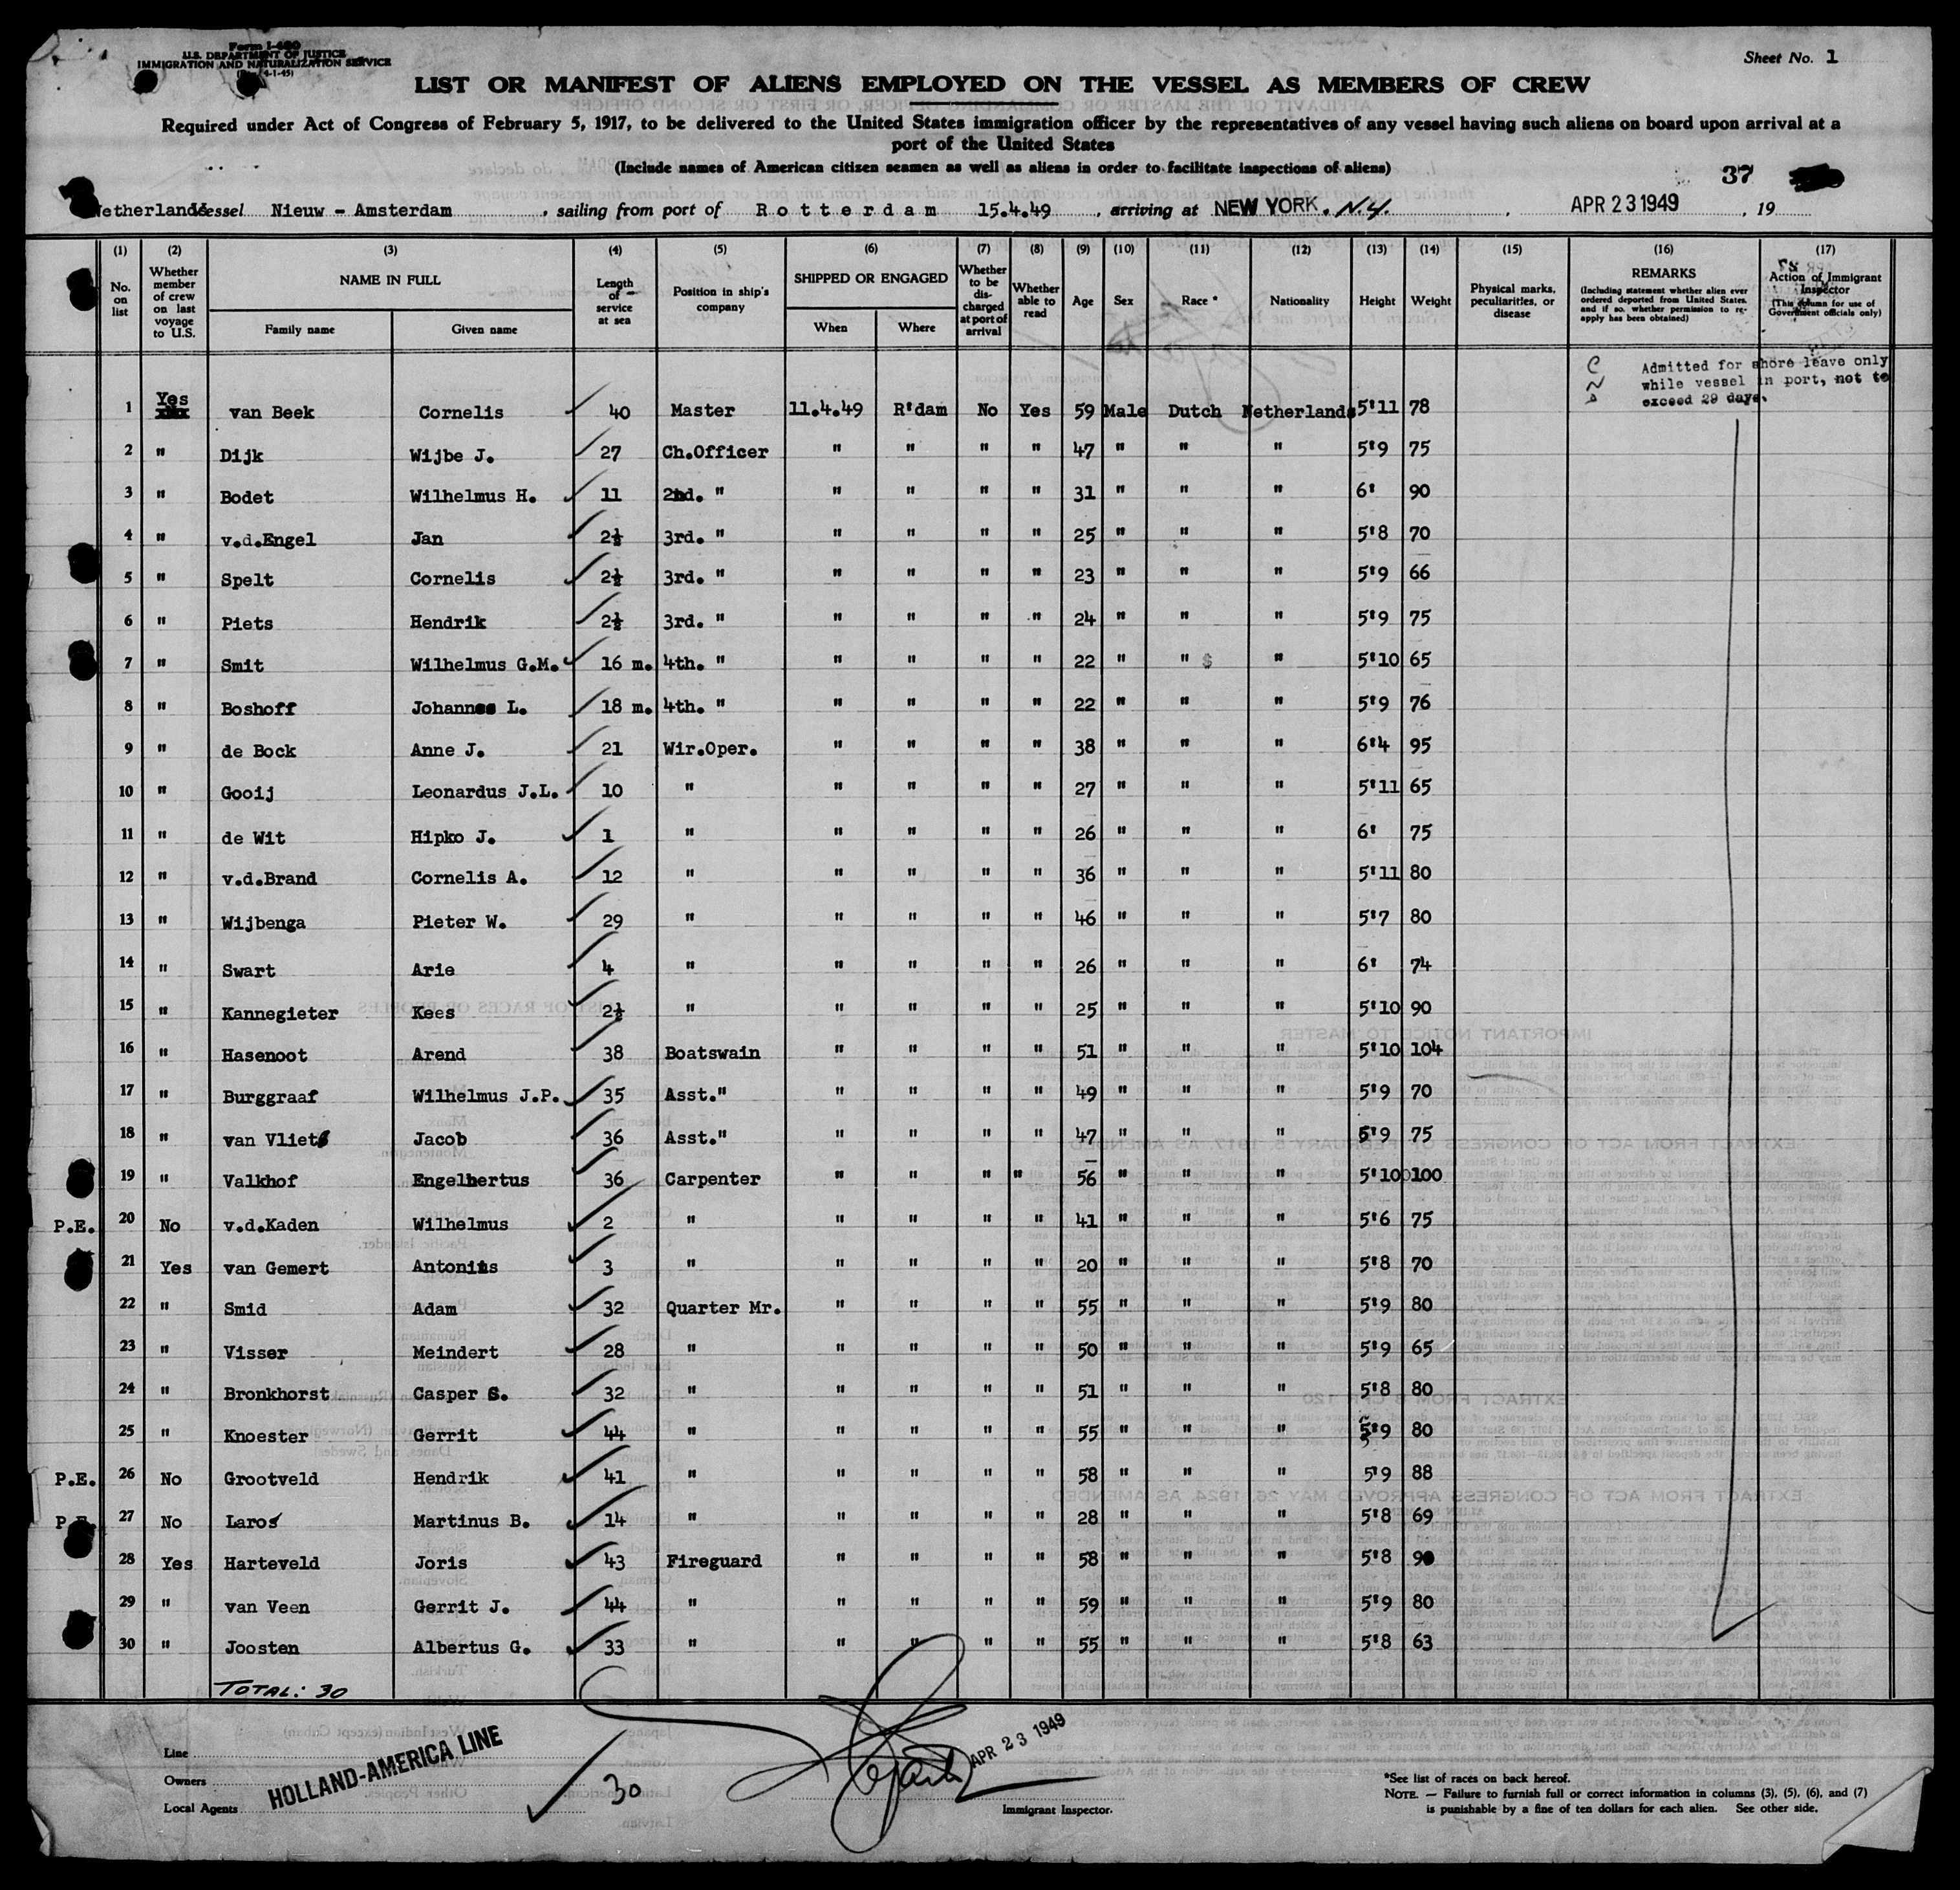 Form I-480
U.S. DEPARTMENT OF JUSTICE
IMMIGRATION AND NATURALIZATION SERVICE
4-1-45)
Sheet No. 1
LIST OR MANIFEST OF ALIENS EMPLOYED ON THE VESSEL AS MEMBERS OF CREW
Required under Act of Congress of February 5, 1917, to be delivered to the United States immigration officer by the representatives of any vessel having such aliens on board upon arrival at a
port of the United States
(Include names of American citizen seamen as well as aliens in order to facilitate inspections of aliens)
37
Netherlands Vessel Nieuw - Amsterdam, sailing from port of Rotterdam 15.4.49, arriving at NEW YORK. N.Y., APR 23 1949, 19
(1) (2) (3) (4) (5) (6) (7) (8) (9) (10) (11) (12) (13) (14) (15) (16) (17)
No. on list
Whether member of crew on last voyage to U.S.
NAME IN FULL
Family name
Given name
Length of service at sea
Position in ship's company
SHIPPED OR ENGAGED
When
Where
Whether to be discharged at port of arrival
Whether able to read
Age
Sex
Race *
Nationality
Height
Weight
Physical marks, peculiarities, or disease
REMARKS
(Including statement whether alien ever ordered deported from United States, and if so, whether permission to reapply has been obtained)
Action of Immigrant Inspector
(This column for use of Government officials only)
Admitted for shore leave only
while vessel in port, not to
exceed 29 days.
1 Yes van Beek Cornelis 40 Master 11.4.49 R'dam No Yes 59 Male Dutch Netherlands 5'11 78
2 " Dijk Wijbe J. 27 Ch.Officer " " " " 47 " " " 5'9 75
3 " Bodet Wilhelmus H. 11 2nd. " " " " " 31 " " " 6' 90
4 " v.d.Engel Jan 2½ 3rd. " " " " " 25 " " " 5'8 70
5 " Spelt Cornelis 2½ 3rd. " " " " " 23 " " " 5'9 66
6 " Piets Hendrik 2½ 3rd. " " " " " 24 " " " 5'9 75
7 " Smit Wilhelmus G.M. 16 m. 4th. " " " " " 22 " " " 5'10 65
8 " Boshoff Johannes L. 18 m. 4th. " " " " " 22 " " " 5'9 76
9 " de Bock Anne J. 21 Wir.Oper. " " " " 38 " " " 6'4 95
10 " Gooij Leonardus J.L. 10 " " " " " 27 " " " 5'11 65
11 " de Wit Hipko J. 1 " " " " " 26 " " " 6' 75
12 " v.d.Brand Cornelis A. 12 " " " " " 36 " " " 5'11 80
13 " Wijbenga Pieter W. 29 " " " " " 46 " " " 5'7 80
14 " Swart Arie 4 " " " " " 26 " " " 6' 74
15 " Kannegieter Kees 2½ " " " " " 25 " " " 5'10 90
16 " Hasenoot Arend 38 Boatswain " " " " 51 " " " 5'10 104
17 " Burggraaf Wilhelmus J.P. 35 Asst." " " " " 49 " " " 5'9 70
18 " van Vliet Jacob 36 Asst." " " " " 47 " " " 5'9 75
19 " Valkhof Engelbertus 36 Carpenter " " " " 56 " " " 5'10 100
P.E. 20 No v.d.Kaden Wilhelmus 2 " " " " " 41 " " " 5'6 75
21 Yes van Gemert Antonius 3 " " " " " 20 " " " 5'8 70
22 " Smid Adam 32 Quarter Mr. " " " " 55 " " " 5'9 80
23 " Visser Meindert 28 " " " " " 50 " " " 5'9 65
24 " Bronkhorst Casper S. 32 " " " " " 51 " " " 5'8 80
25 " Knoester Gerrit 44 " " " " " 55 " " " 5'9 80
P.E. 26 No Grootveld Hendrik 41 " " " " " 58 " " " 5'9 88
P.E. 27 No Laros Martinus B. 14 " " " " " 28 " " " 5'8 69
28 Yes Harteveld Joris 43 Fireguard " " " " 58 " " " 5'8 90
29 " van Veen Gerrit J. 44 " " " " " 59 " " " 5'9 80
30 " Joosten Albertus G. 33 " " " " " 55 " " " 5'8 63
TOTAL: 30
Line
Owners
Local Agents
HOLLAND-AMERICA LINE
30
APR 23 1949
Immigrant Inspector.
*See list of races on back hereof.
NOTE. — Failure to furnish full or correct information in columns (3), (5), (6), and (7)
is punishable by a fine of ten dollars for each alien. See other side.